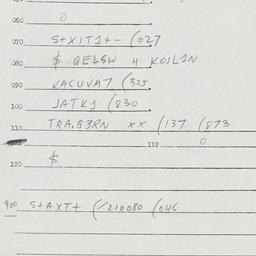 060 0
070 S+XIT1+- (027
080 $ QELSW 4 KOJL1N
090 KACUVM7 (325
100 JATK1 (830
110 TRA.B3RN xx (137 (873
112 0
120 $
900 S+AXT+ (/210080 (046